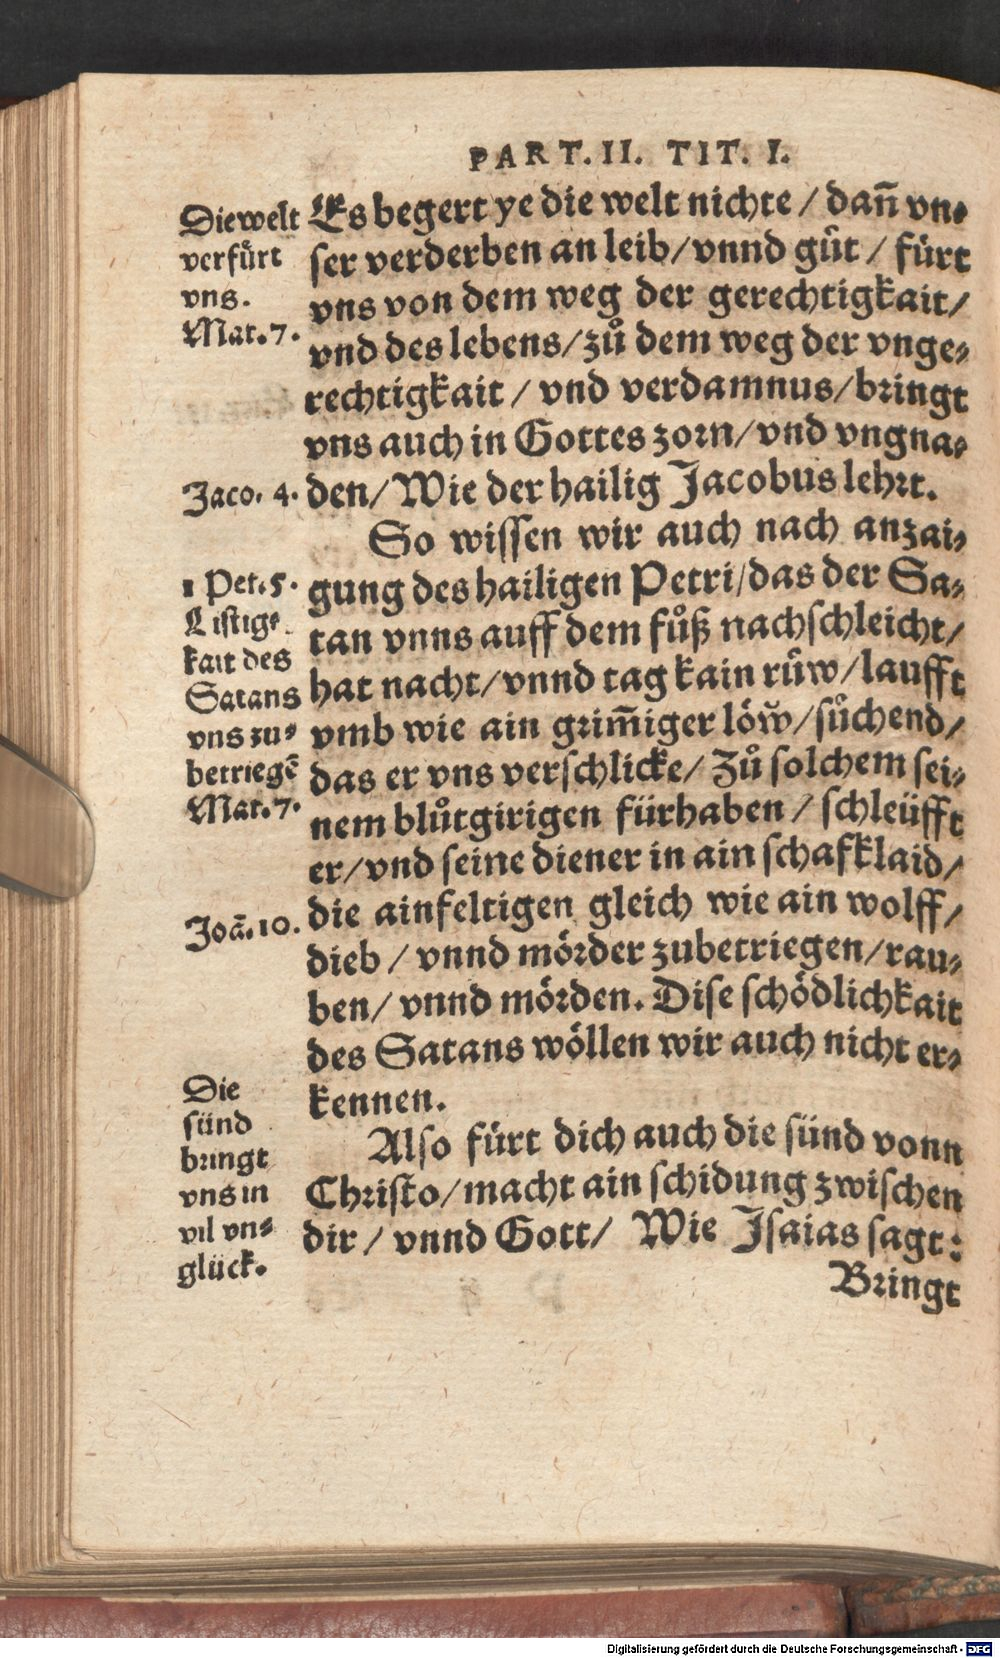 PART. II. TIT. I.
Die welt
verfürt
vns.
Mat. 7.
Es begert ye die welt nichts / dañ vn⸗
ser verderben an leib / vnnd gůt / fürt
vns von dem weg der gerechtigkait /
vnd des lebens / zů dem weg der vnge⸗
rechtigkait / vnd verdamnus / bringt
vns auch in Gottes zorn / vnd vngna⸗
Jaco. 4.
den / Wie der hailig Jacobus lehrt.
So wissen wir auch nach anzai⸗
1 Pet. 5.
Listig⸗
kait des
Satans
vns zu⸗
betriegē
Mat. 7.
gung des hailigen Petri / das der Sa⸗
tan vnns auff dem fůß nachschleicht /
hat nacht / vnnd tag kain růw / laufft
vmb wie ain grim̃iger löw̃ / sůchend /
das er vns verschlicke / Zů solchem sei⸗
nem blůtgirigen fürhaben / schleüfft
er / vnd seine diener in ain schafklaid /
Joā. 10.
die ainfeltigen gleich wie ain wolff /
dieb / vnnd mörder zubetriegen / rau⸗
ben / vnnd mörden. Dise schödlichkait
des Satans wöllen wir auch nicht er⸗
kennen.
Die
sünd
bringt
vns in
vil vn⸗
glück.
Also fürt dich auch die sünd vonn
Christo / macht ain schidung zwischen
dir / vnnd Gott / Wie Isaias sagt:
Bringt
Digitalisierung gefördert durch die Deutsche Forschungsgemeinschaft - DFG